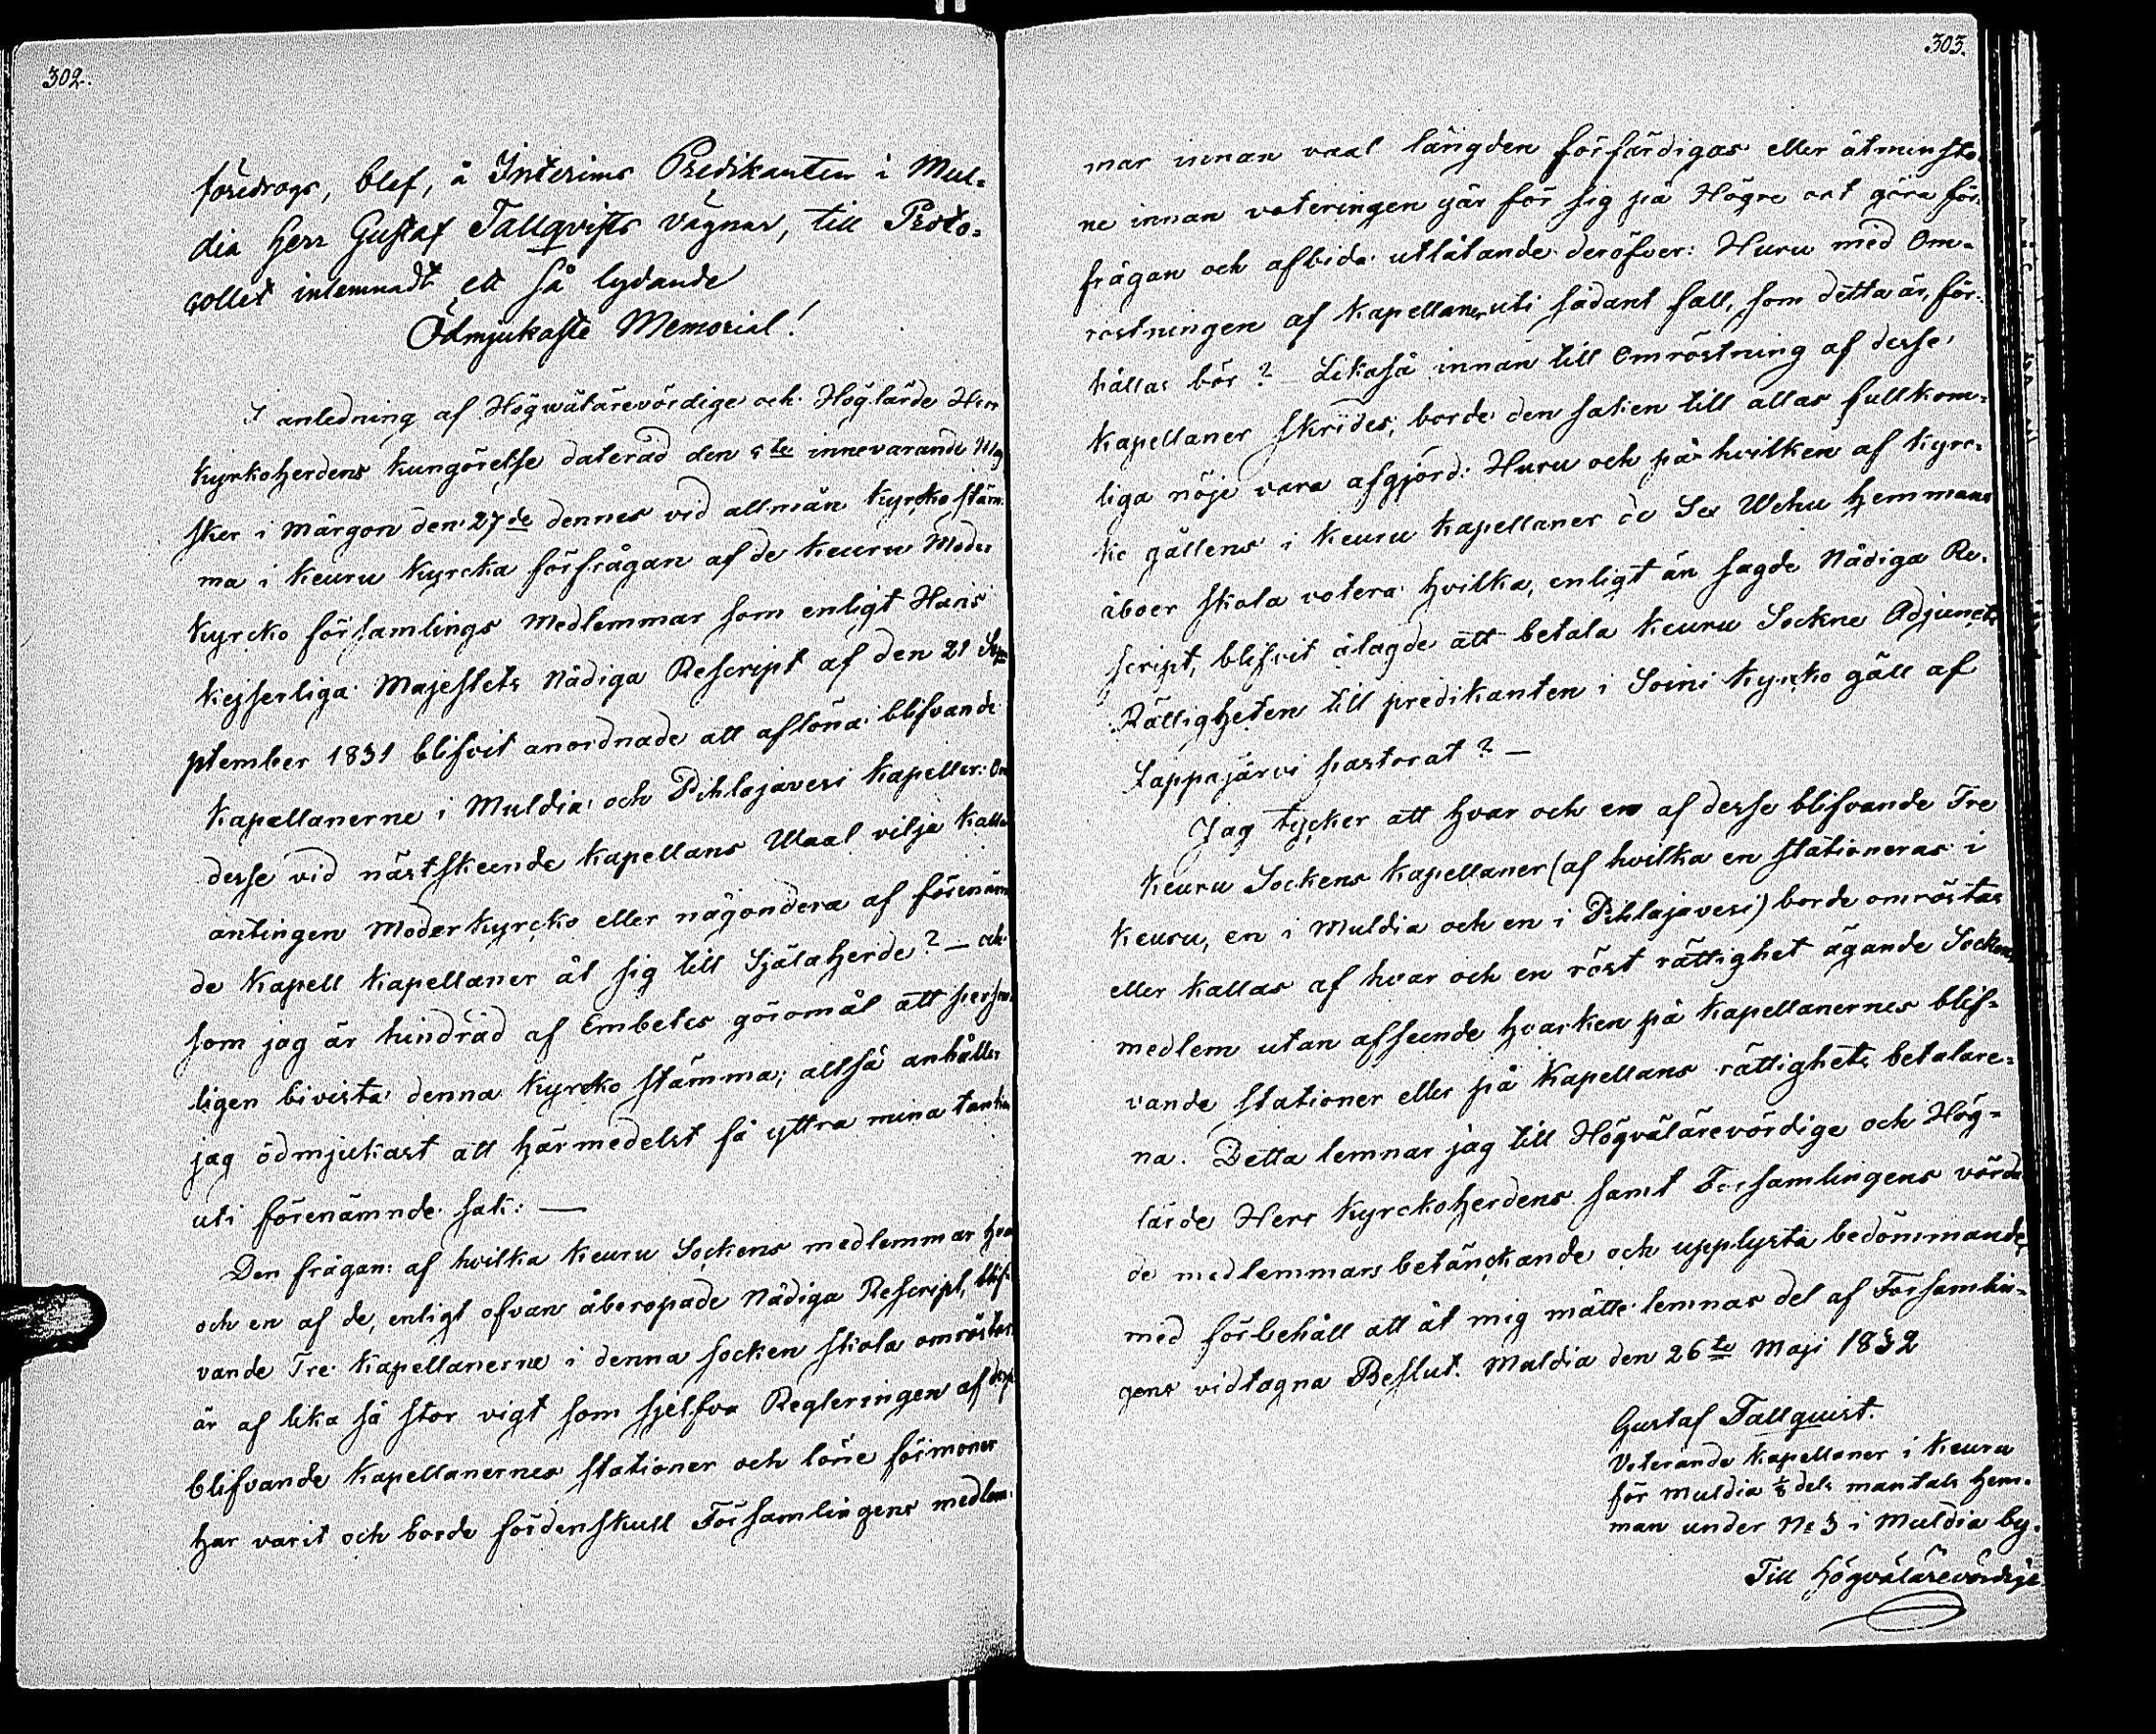 302.
föredrogs, blef, å Interims Predikanten i Mul=
dia Herr Gustaf Tallqvists vägnar, till Proto=
collet inlemnadt ett så lydande
Ödmjukaste Memorial!
I anledning af Högwälärevördige och Höglärde Herr
Kyrkoherdens kungörelse daterad den 5te innevarande Maj
sker i Morgon den 27de dennes vid allmän Kyrcko stäm
ma i Keuru Kyrcka förfrågan af de Keuru Moder
Kyrcko församlings Medlemmar som enligt Hans
Kejserliga Majestets Nådiga Rescript af den 21 Se
ptember 1831 blifvit anordnade att aflöna blifvande
Kapellanerne i Muldia och Pihlajavesi Kapeller: Om
desse vid nästskeende Kapellans Waal vilja kalla
antingen Moderkyrcko eller någondera af förenämn
de Kapell Kapellaner åt sig till Själaherde? — och
som jag är hindrad af Embetes göromål att person
ligen bivista denna Kyrcko stämma; altså anhåller
jag ödmjukast att härmedelst få yttra mina tankar
uti förenämnde sak: —
Den frågan: af hvilka Keuru Sockens medlemmar hvar
och en af de, enligt ofvan åberopade Nådiga Rescript, blif=
vande Tre Kapellanerne i denna socken skola omröstas
är af lika så stor vigt som sjelfva Regleringen af desse
blifvande Kapellanernes stationer och löne förmoner
har varit och borde fördenskull Församlingens medlem=
303.
mar innan vaal längden förfärdigas eller åtminsto
ne innan voteringen går för sig på Högre ort göra för=
frågan och afbida utlåtande deröfver: Huru med Om=
röstningen af Kapellaner uti sådant fall, som detta är, för=
hållas bör? — Likaså innan till Omröstning af desse
Kapellaner skrides, borde den saken till allas fullkom=
liga nöje vara afgjord: Huru och på hvilken af Kyrc=
ko gällens i Keuru Kapellaner de Sex Wehu Hemmans
åboer skola votera hvilka, enligt än sagde Nådiga Re=
script, blifvit ålagde att betala Keuru Sockne Adjuncts
Rättigheten till predikanten i Soini Kyrcko gäll af
Lappajärvi pastorat? —
Jag tycker att hvar och en af desse blifvande Tre
Keuru Sockens Kapellaner (af hvilka en stationeras i
Keuru, en i Muldia och en i Pihlajavesi) borde omröstas
eller kallas af hvar och en röst rättighet ägande Sockne
medlem utan afseende hvarken på Kapellanernes blif=
vande stationer eller på Kapellans rättighets betalare=
na. Detta lemnar jag till Högvälärevördige och Hög=
lärde Herr Kyrckoherdens samt Församlingens vörda
de medlemmars betänckande och upplysta bedömmande,
med förbehåll att åt mig måtte lemnas del af Församlin=
gens vidtagna Beslut. Muldia den 26te Maji 1832
Gustaf Tallquist.
Voterande Kapellaner i Keuru
för Muldia 1/8 dels mantals Hem=
man under No 3 i Muldia by.
Till Högvälärevördige